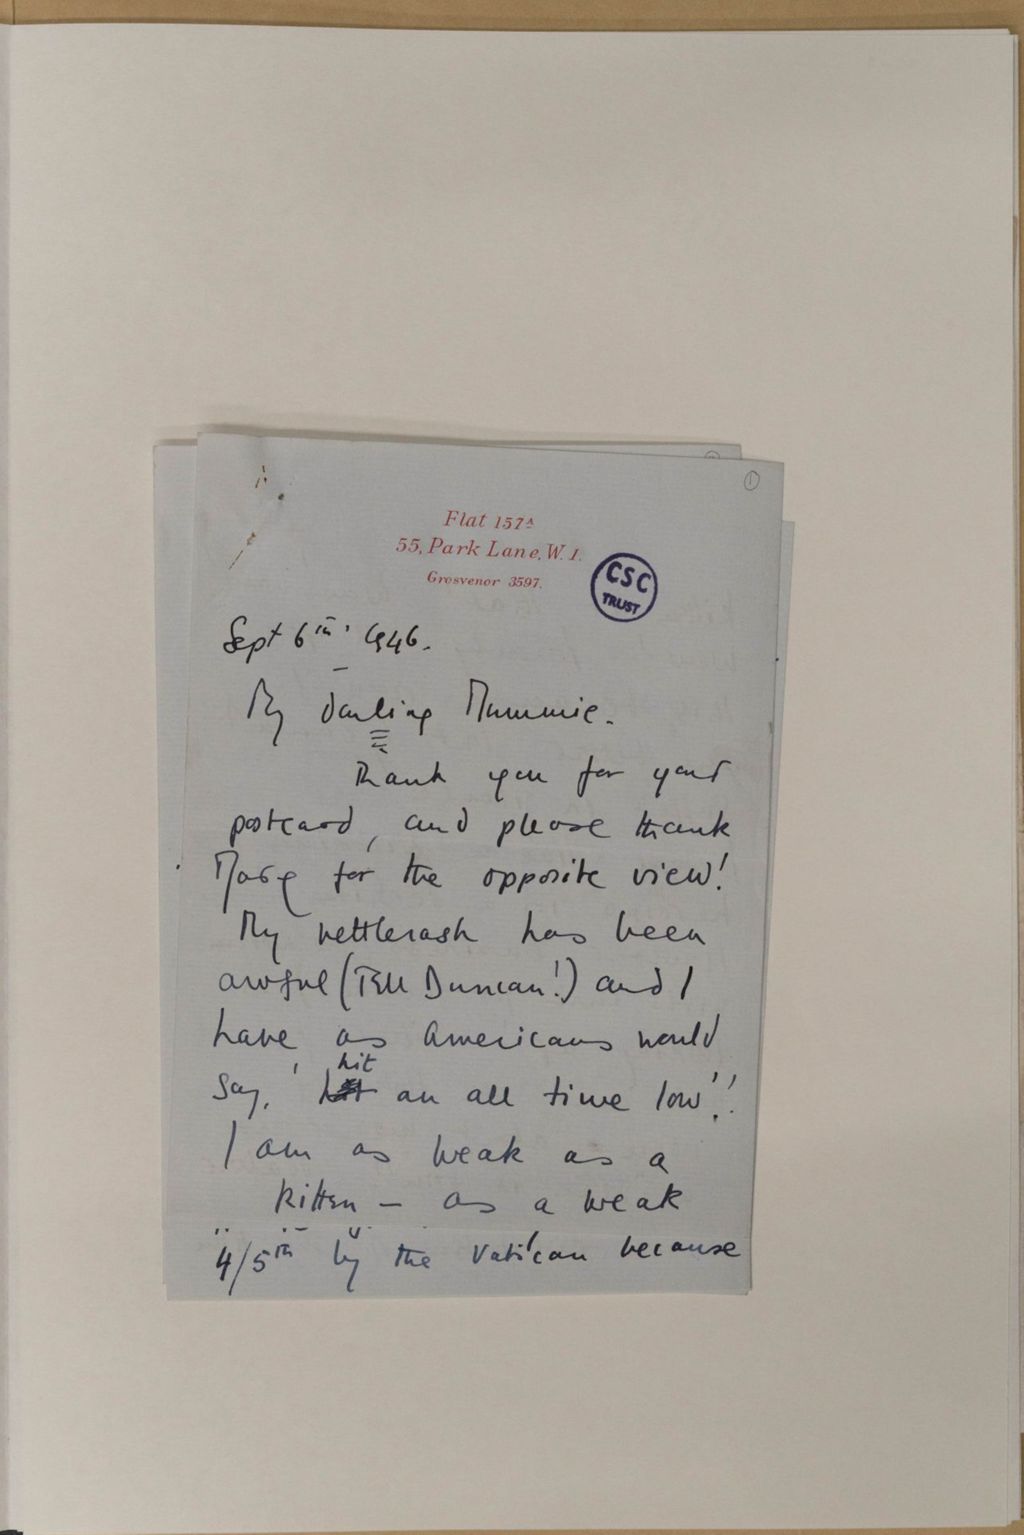 ①
Flat 157ᴬ
55, Park Lane, W. 1.
Grosvenor 3597.
CSC
TRUST
Sept 6th. 1946.
My darling Mummie.
Thank you for your
postcard, and please thank
Mary for the opposite view!
My nettlerash has been
awful (Tell Duncan!) and I
have, as Americans would
say, 'hit an all time low'!
I am as weak as a
kitten – as a weak
4/5th by the Vatican because